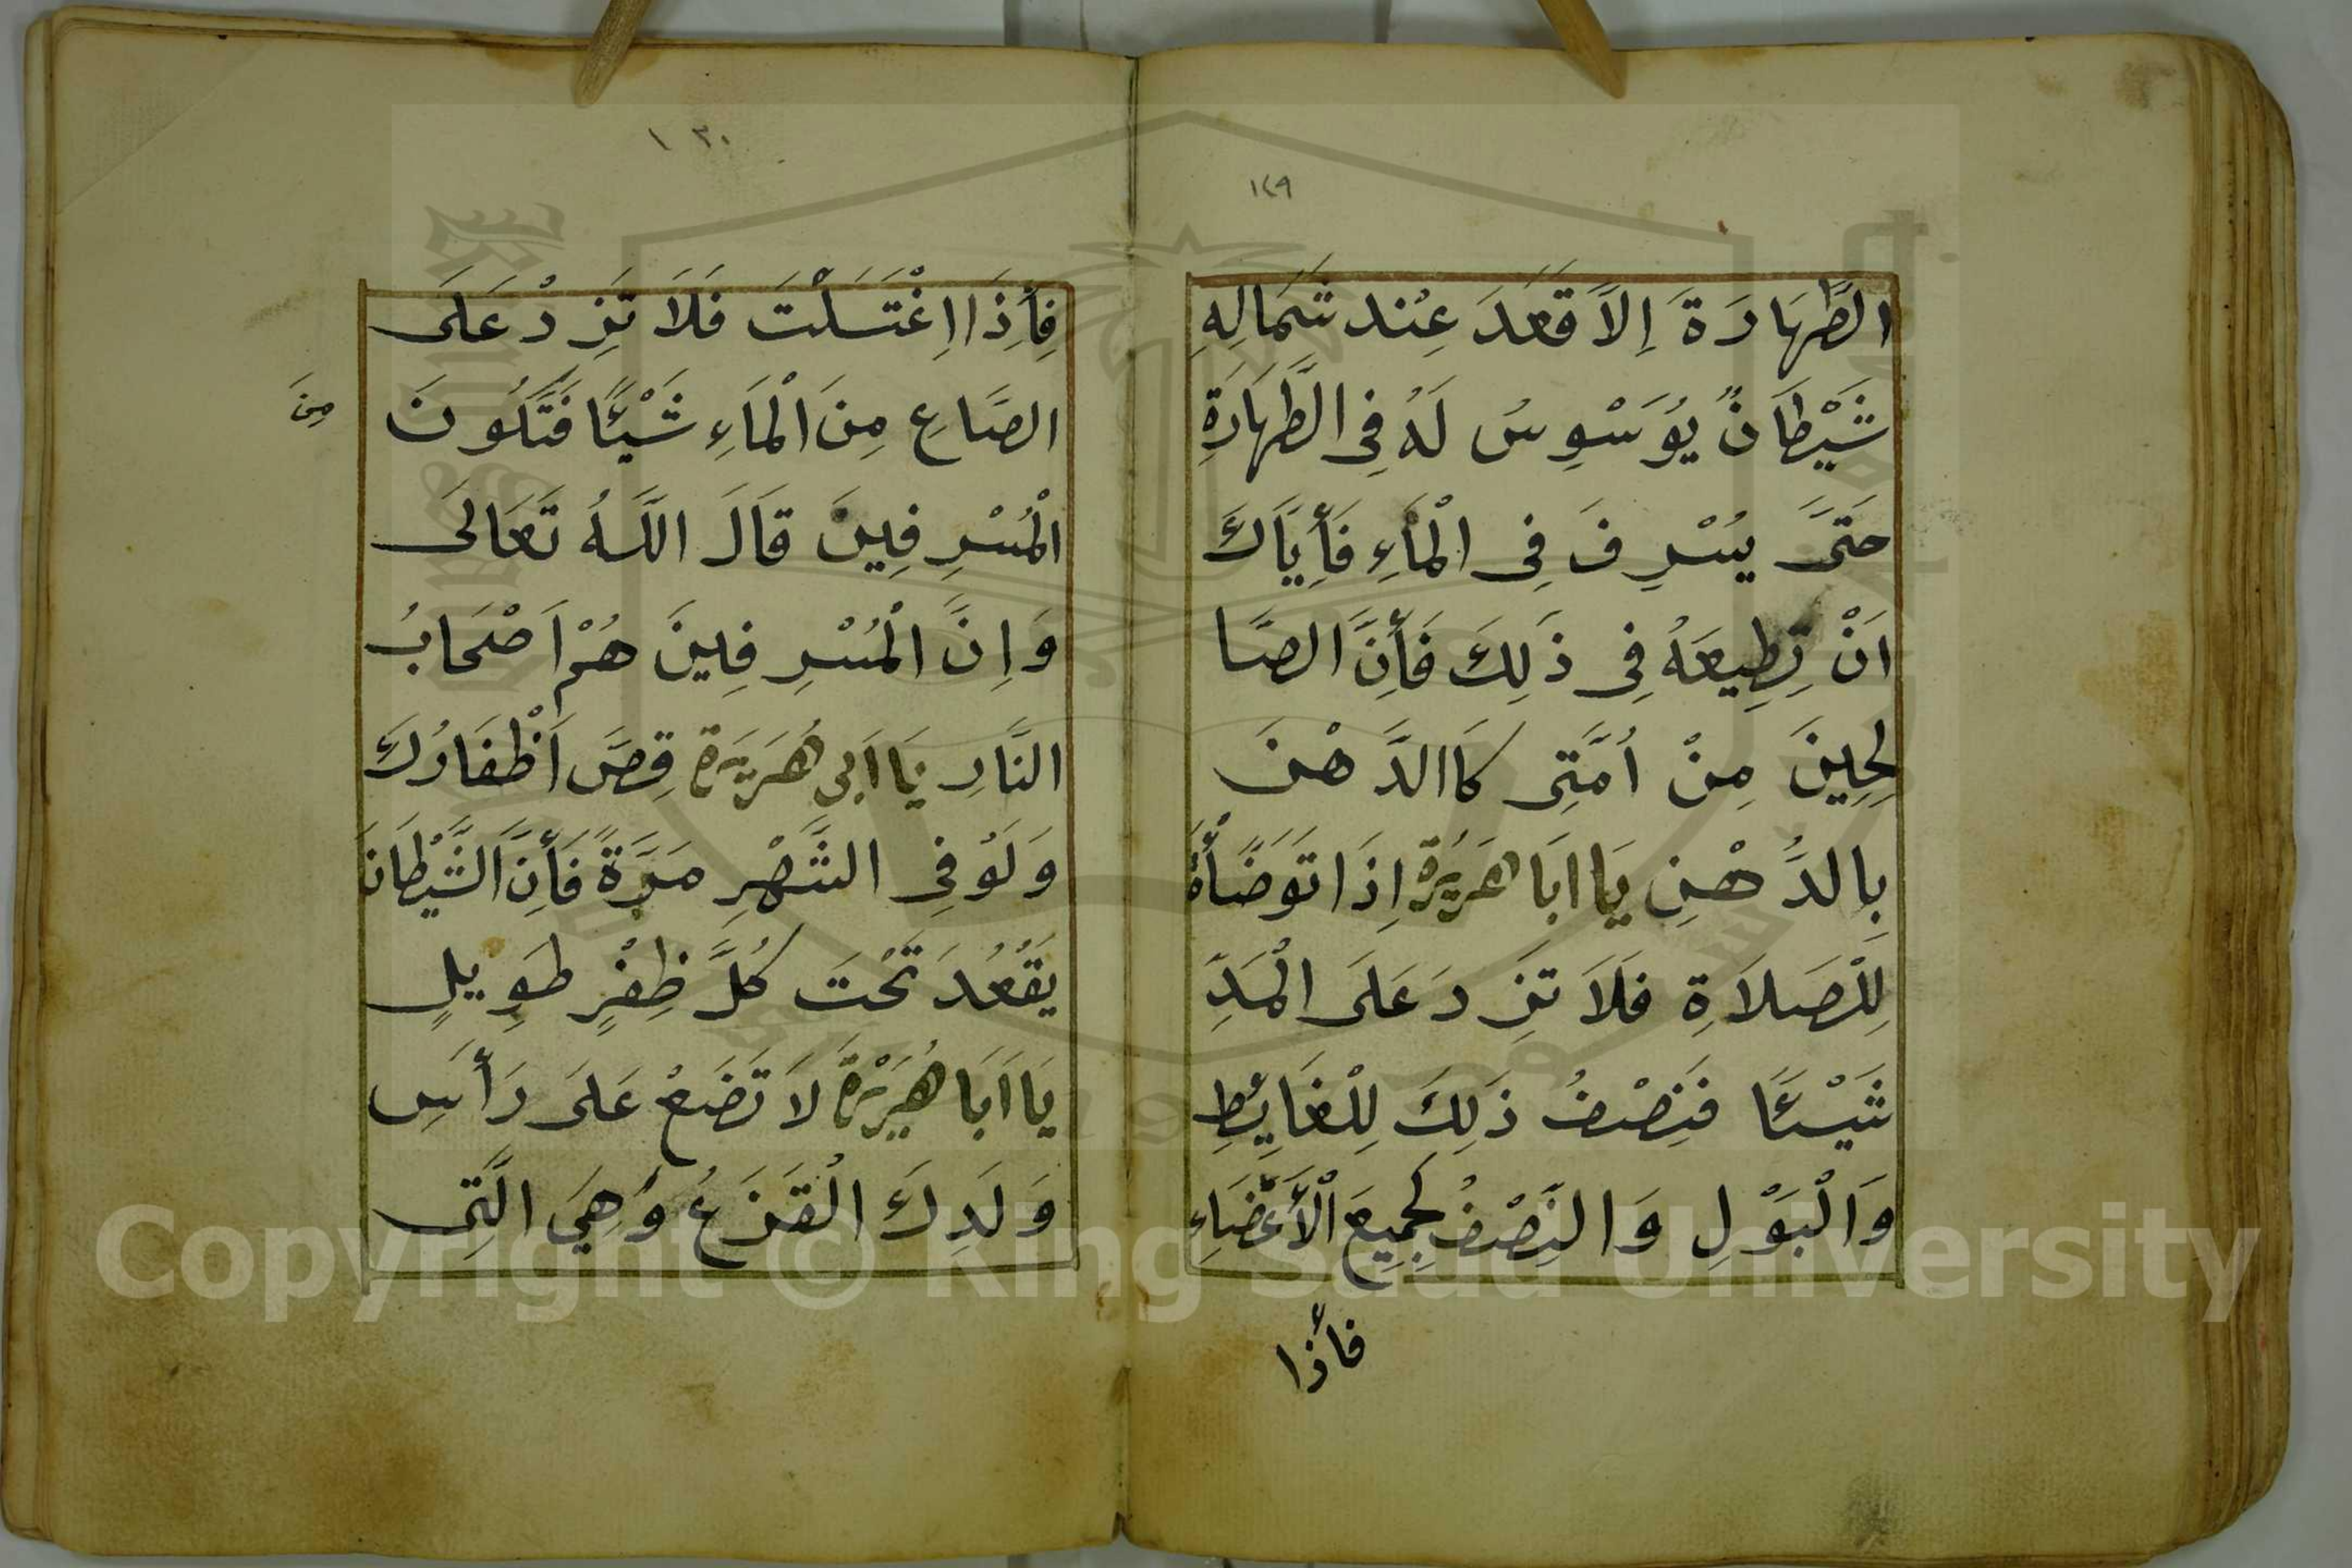 ١٢٩
الطَّهَارَةَ إِلَّا قَعَدَ عِنْد شِمَالِهِ
شَيْطَانٌ يُوَسْوِسُ لَهُ فِى الطَّهَارَةِ
حَتَّى يُسْرِفَ فِى الْمَاءِ فَأِيَّاكَ
اَنْ تِطِيعَهُ فِى ذَلِكَ فَأِنَّ الصَّا
لِحِينَ مِنْ اُمَّتِى كَاالدَّهْنَ
بِالدُّهْنِ يَا ابَا هَرَيْرَة اِذَا تَوَضَّأْةَ
لِلْصَلاَةِ فَلَا تَزِدَ عَلَى الْمَدِّ
شَيْئًا فَنِصْفُ ذَلِكَ لِلْغَايِطِ
وَالْبَوْلِ وَالنِّصْفُ لِجَمِيعِ الْأَعْضَاءِ
فأذا
١٣٠
فِأِذَا اِغْتَسَلْتَ فَلَا تَزِدْ عَلَى
الصَّاعِ مِنَ الْمَاءِ شَيْئًا فَتَكُونَ
مِنَ
الْمُسْرِفِينَ قَالَ اللَّهُ تَعَالَى
وَاِنَّ الْمُسْرِفِينَ هُمْ اَصْحَابُ
النَّارِ يَا اَبِى هُرَيْرَة قِصَّ اَظْفَارُكَ
وَلَوُ فِى الشَّهْرِ مَرَّةً فَأِنَّ الشَّيْطَانَ
يَقْعُدَ تَحْتَ كُلَّ ظِفْرٍ طَوِيلٍ
يَا اَبَا هُرَيْرَةَ لَا تَضَعْ عَلَى رَأسِ
وَلَدِكَ الْقَزَعُ وَهِيَ الَّتِى
Copyright © King Saud University